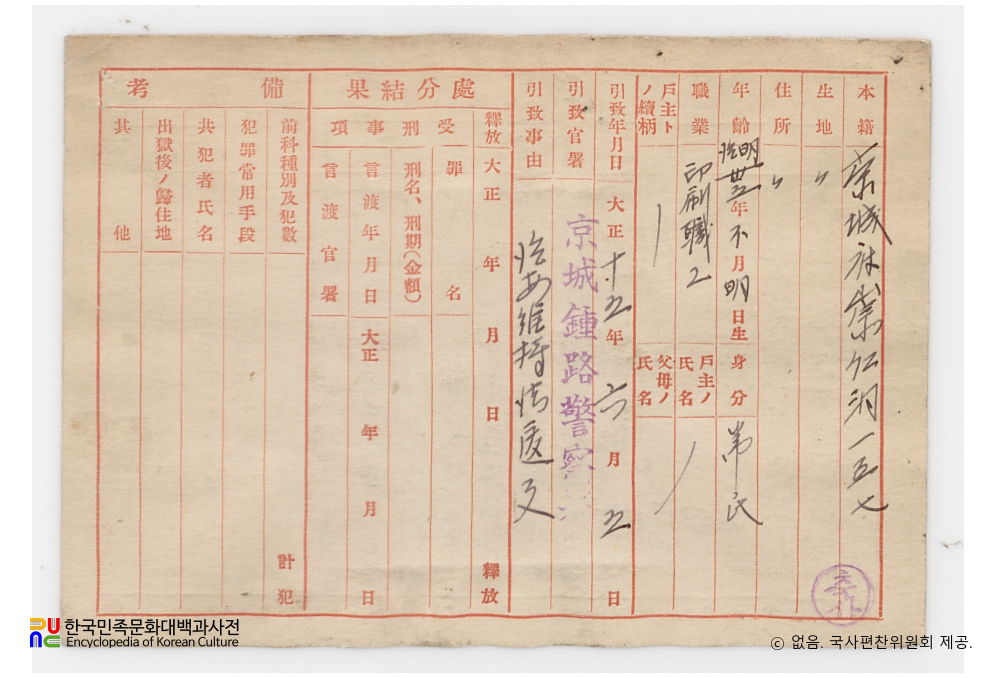 本籍 京城府崇仁洞一五七
生地 〃
住所 〃
年齡 明治卅五年不月明日生
身分 常民
職業 印刷職工
戶主ノ氏名
戶主トノ續柄
父母ノ氏名
引致年月日 大正十五年六月五日
引致官署 京城鍾路警察
引致事由 治安維持法違反
處分結果
釋放 大正 年 月 日 釋放
受刑事項
罪名
刑名、刑期(金額)
言渡年月日 大正 年 月 日
言渡官署
備考
前科種別及犯數 計 犯
犯罪常用手段
共犯者氏名
出獄後ノ歸住地
其他
한국민족문화대백과사전
Encyclopedia of Korean Culture
ⓒ 없음. 국사편찬위원회 제공.